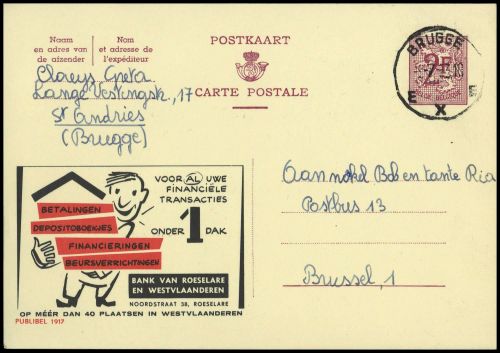 Naam
en adres van
de afzender
Nom
et adresse de
l'expéditeur
POSTKAART
CARTE POSTALE
BRUGGE
E X E
2F
Claeys Greta
Lange Vestingstr, 17
St Andries
(Brugge)
VOOR AL UWE
FINANCIËLE
TRANSACTIES
ONDER 1 DAK
BETALINGEN
DEPOSITOBOEKJES
FINANCIERINGEN
BEURSVERRICHTINGEN
BANK VAN ROESELARE
EN WESTVLAANDEREN
NOORDSTRAAT 38, ROESELARE
OP MÉÉR DAN 40 PLAATSEN IN WESTVLAANDEREN
PUBLIBEL 1917
Aan nonkel Bob en tante Ria
Postbus 13
Brussel, 1